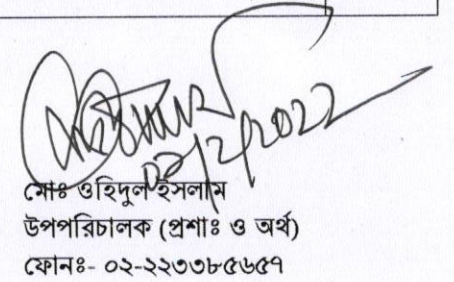 মোঃ ওহিদুল ইসলাম
উপপরিচালক (প্রশাঃ ও অর্থ)
ফোনঃ- ০২-২২৩৩৮৫৬৫৭